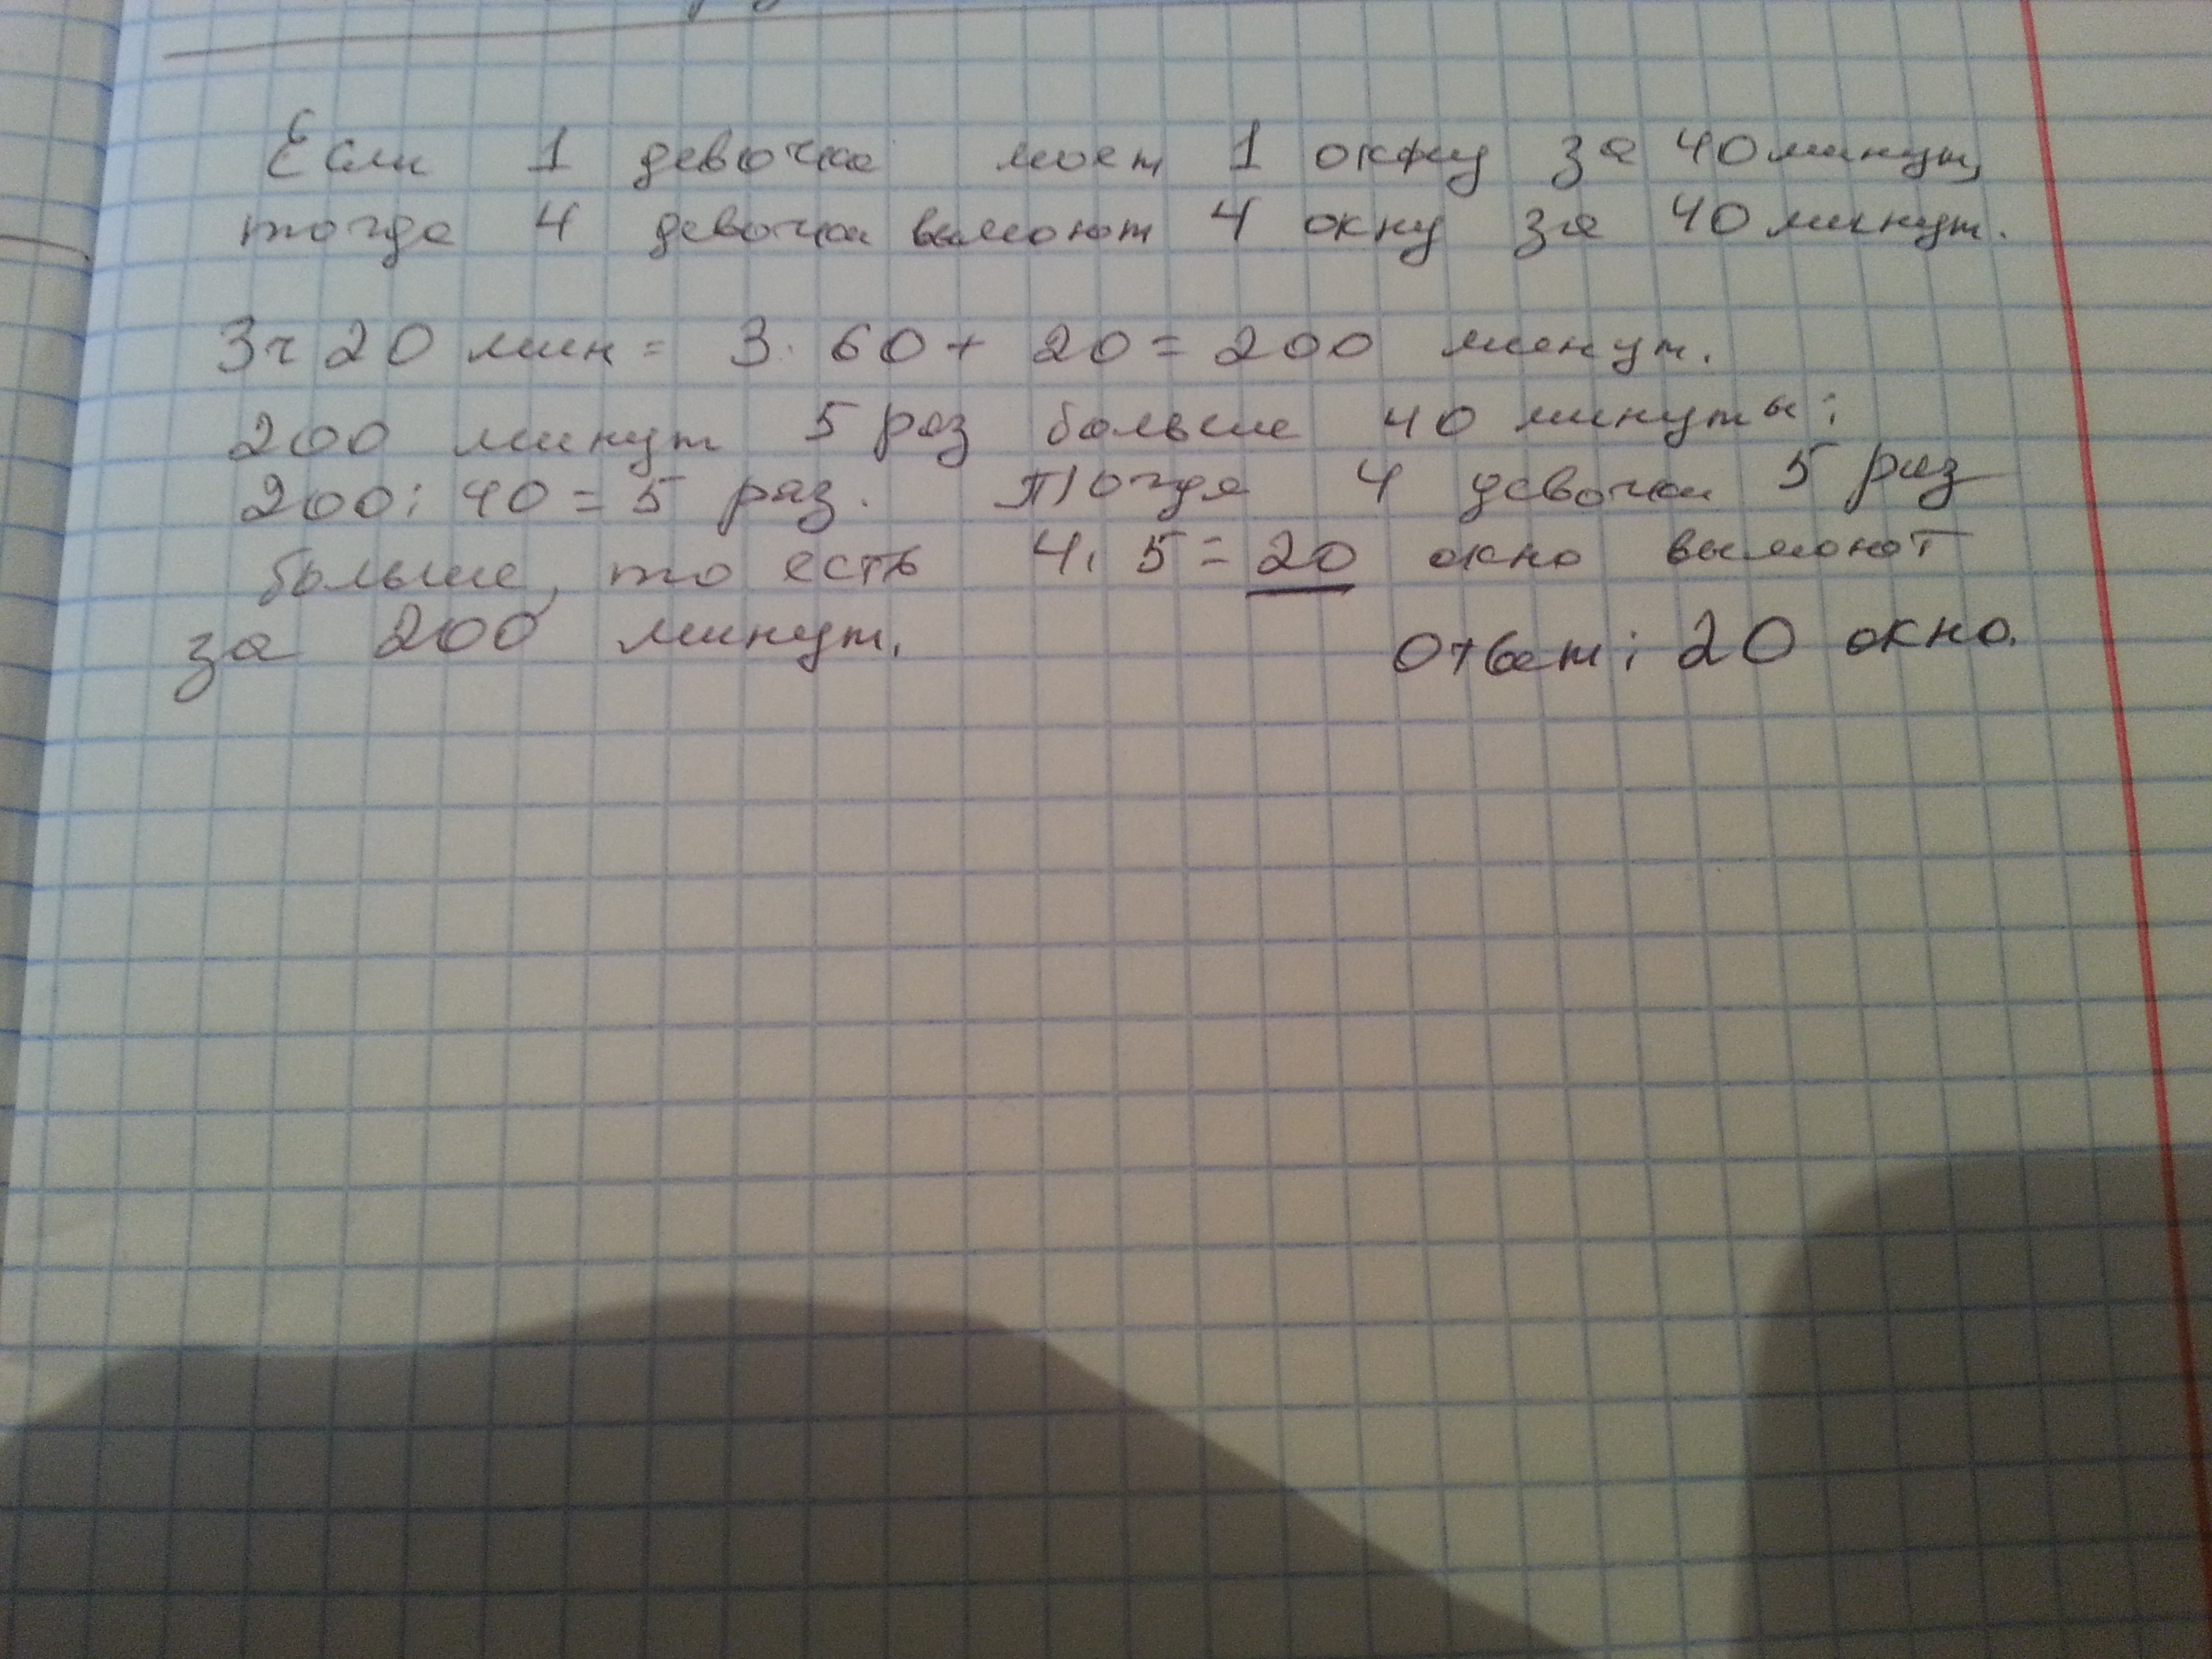 Если 1 девочка моет 1 окну за 40 минут,
тогда 4 девочки вымоют 4 окну за 40 минут.
3ч 20 мин = 3 · 60 + 20 = 200 минут.
200 минут 5 раз больше 40 минуты:
200 : 40 = 5 раз. Тогда 4 девочки 5 раз
больше, то есть 4 · 5 = 20 окно вымоют
за 200 минут.
Ответ: 20 окно.